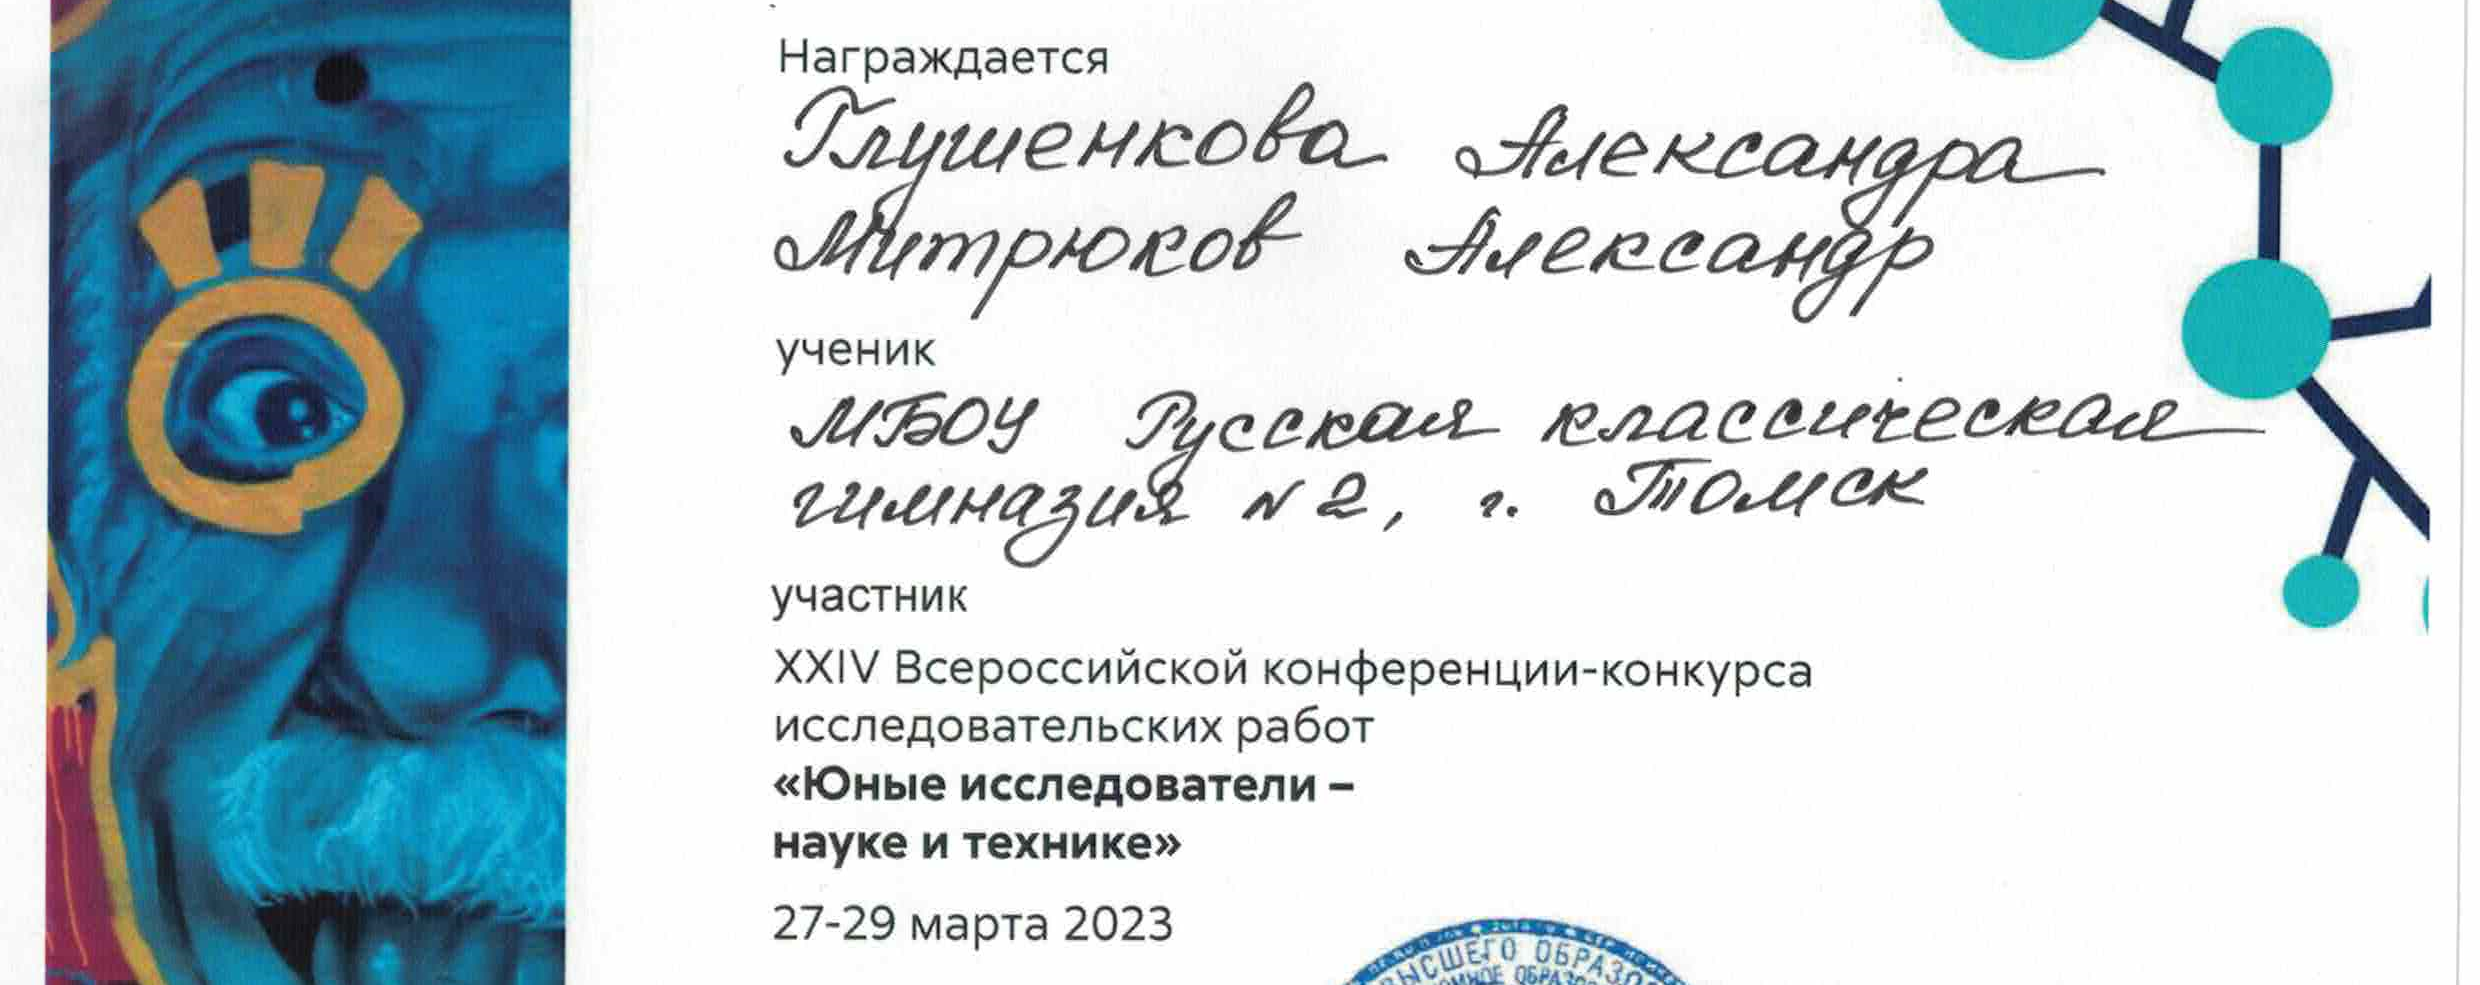 Награждается
Глушенкова Александра
Митрюков Александр
ученик
МБОУ Русская классическая
гимназия №2, г. Томск
участник
XXIV Всероссийской конференции-конкурса
исследовательских работ
«Юные исследователи –
науке и технике»
27-29 марта 2023
ВЫСШЕГО